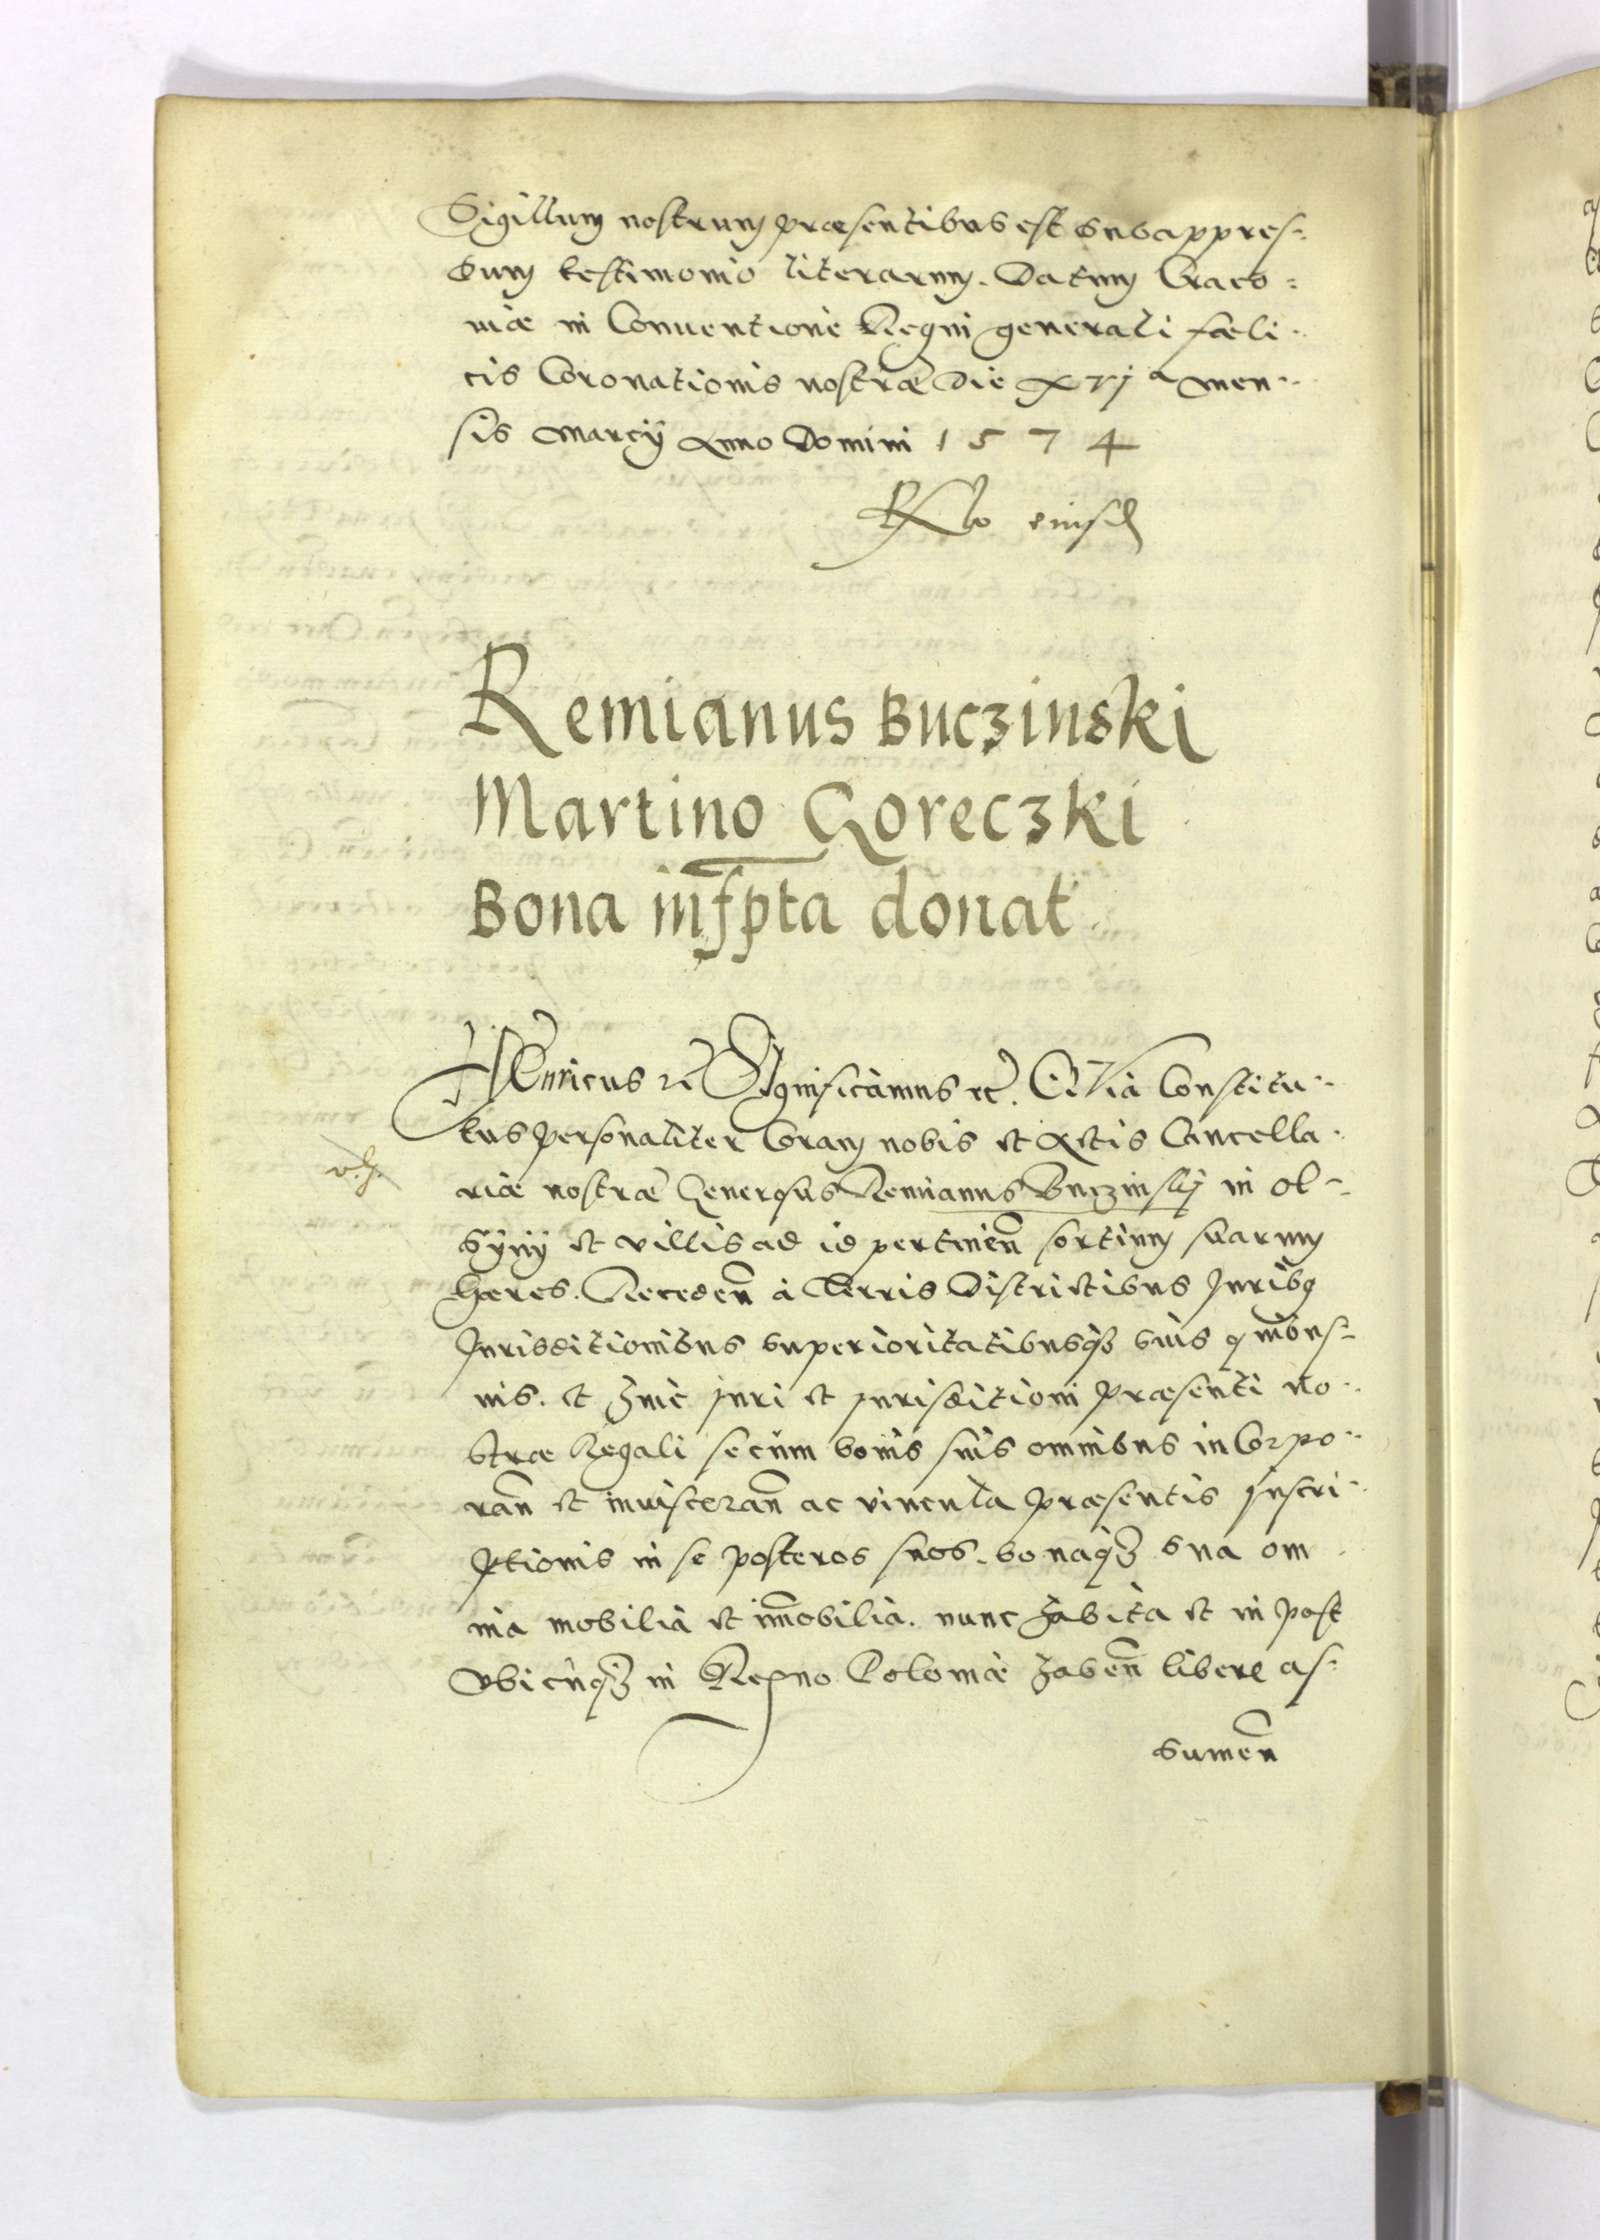 Sigillum nostrum præsentibus est subappres-
sum testimonio literarum. Datum Craco-
uiæ in Conuentione Regni generali fæli-
cis Coronationis nostræ Die xvj a men-
sis Marcij Anno Domini 1574
Rlo eiusd
Remianus Buczinski
Martino Goreczki
Bona infspta donat
HEnricus etc Significamus etc. QVia Constitu-
tus personaliter Coram nobis et Actis Cancella-
riæ nostræ Generosus Remianus Buczinskj in Ol-
syny et villis ad id pertinen sortium suarum
hæres. Receden a Terris Districtibus Juribq
Jurisditionibus superioritatibusqz suis
uis. et huic juri et jurisditioni præsenti No-
stræ Regali secum bonis suis omnibus inCorpo-
ran et inuisceran ac vincula præsentis jnscri-
ptionis in se posteros suos. bonaqz sua om
nia mobilia et immobilia. nunc habita et in post
Vbicunqz in Regno Poloniæ haben libere as-
sumen